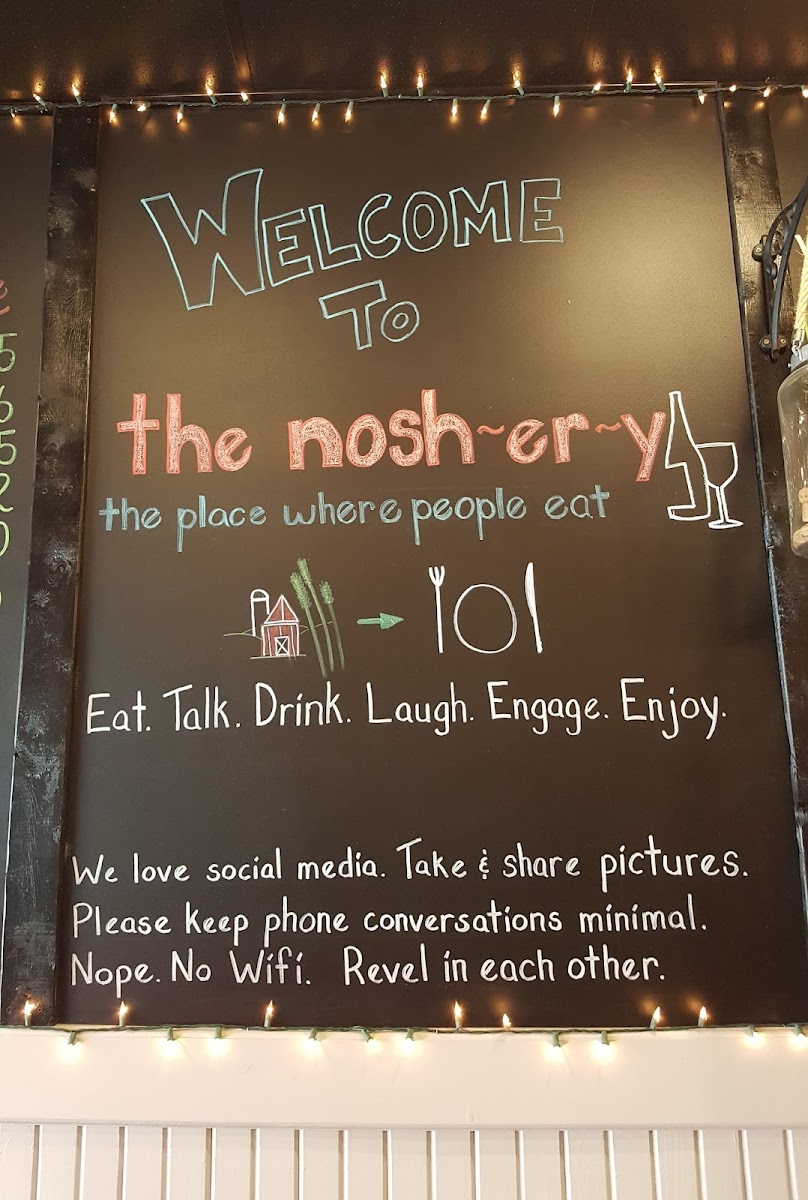 WELCOME
TO
the nosh~er~y
the place where people eat
Eat. Talk. Drink. Laugh. Engage. Enjoy.
We love social media. Take & share pictures.
Please keep phone conversations minimal.
Nope. No Wifi. Revel in each other.